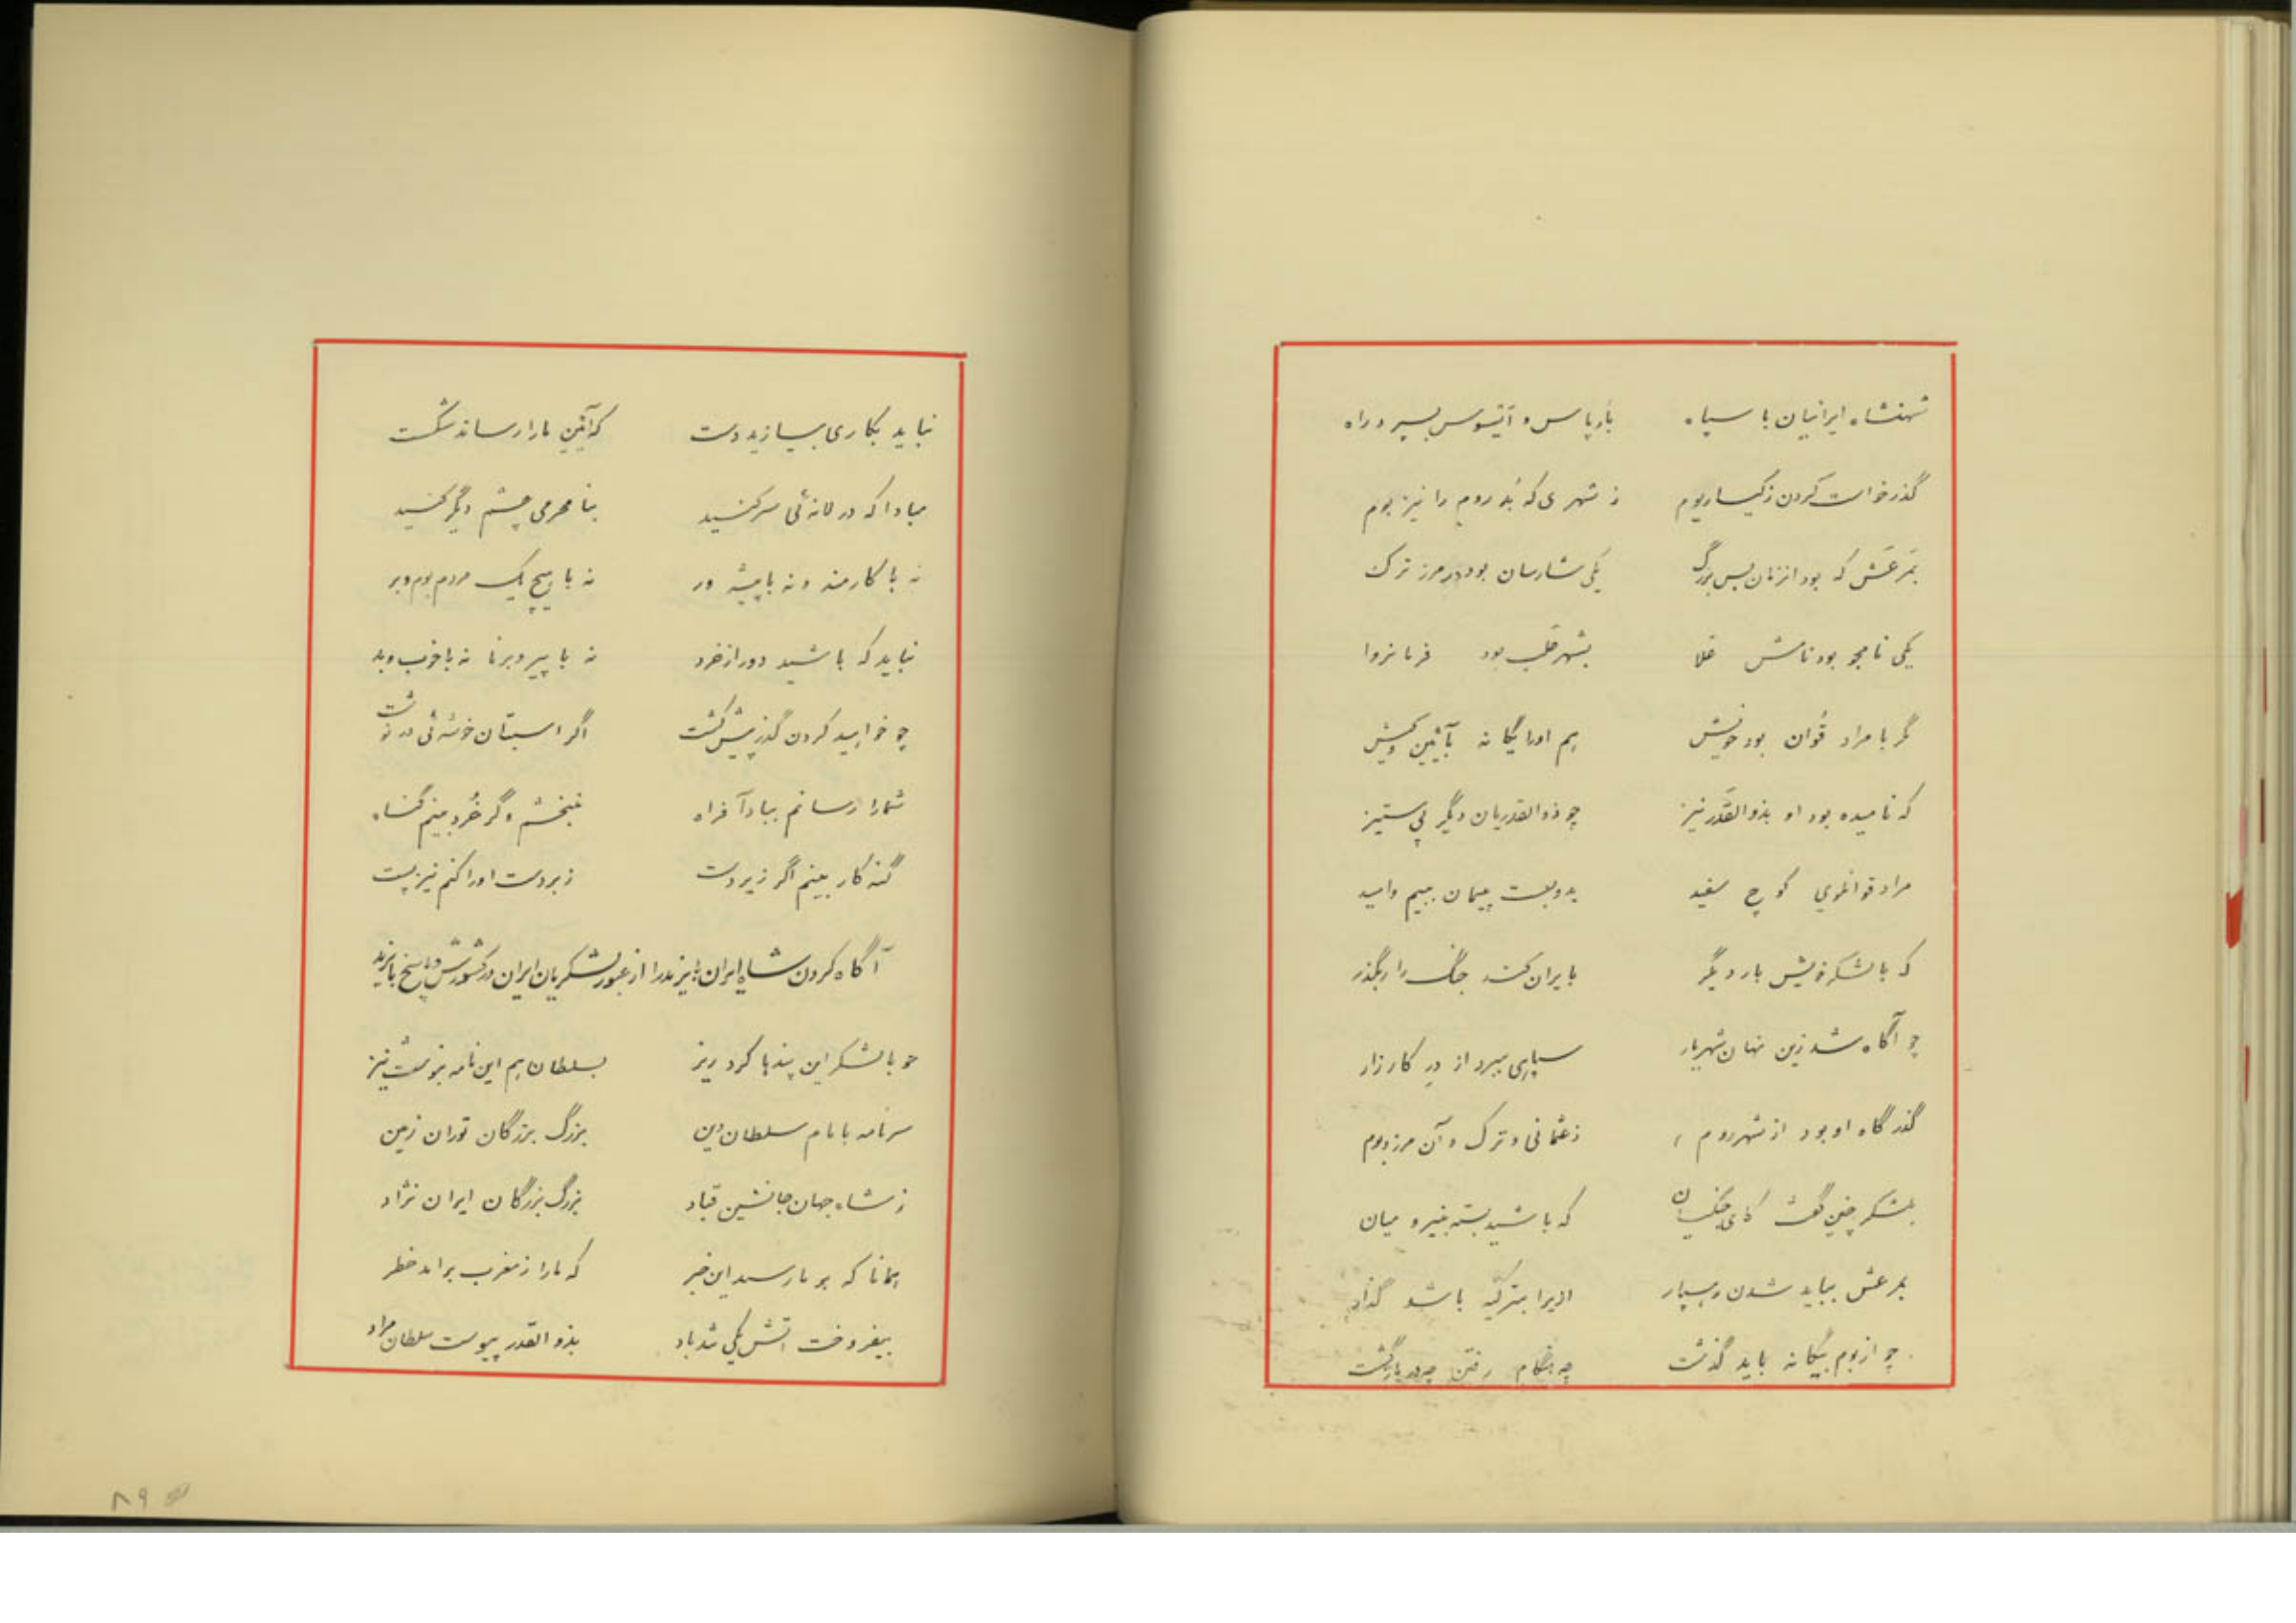 شهنشاه ایرانیان با سپاه بارپاس و آتیوس بسپرد راه
گذر خواست کردن ز کیساریوم ز شهری که بُد روم را نیز بوم
بمَرعَش که بود از زنان بس بزرگ یکی شارسان بود در مرز ترک
یکی نامجو بود نامش عَلا بشهر حَلَب بود فرمانروا
گر با مراد قُوان بود خویش هم او را یگانه بآئین و کیش
که نامیده بود او بذوالقَدَر نیز چو ذوالقدریان دیگر پی ستیز
مراد قوانلوی کوچ سفید بدو بست پیمان ببیم و امید
که با لشکر خویش بار دیگر بایران کند جنگ را رهگذر
چو آگاه شد زین نهان شهریار سپاهی ببرد از در کارزار
گذرگاه او بود از شهر روم ز عثمانی و ترک و آن مرز و بوم
بلشکر چنین گفت کای جنگیان که باشید بسته بنیرو میان
بمرعش بباید شدن رهسپار ازیرا بترکیّه باشد گذار
چو از بوم بیگانه باید گذشت چه هنگام رفتن چه در بازگشت
نباید بکاری بیازید دست که آئین ما را رساند شکست
مبادا که در خانه‌ئی سر کنید بنامحرمی چشم دیگر کنید
نه با کارمند و نه با پیشه ور نه با هیچ یک مردم بوم و بر
نباید که باشید دور از خرد نه با پیر و برنا نه با خوب و بد
چو خواهید کردن گذر پیش کشت اگر اسبتان خوشه‌ئی در نوشت
شما را رسانم ببادآفراه نبخشم و گر خُرد بینم گناه
گنه کار بینم اگر زیر دست زبردست او را کنم نیز پست
آگاه کردن شاه ایران بایزید را از عبور لشکریان ایران در کشورش و پاسخ بایزید
چو با لشکر این پندها کرد ریز بسلطان هم این نامه بنوشت نیز
سرنامه با نام سلطان دین بزرگ بزرگان توران زمین
ز شاه جهان جانشین قباد بزرگ بزرگان ایران نژاد
همانا که بر ما رسید این خبر که ما را ز مغرب برآمد خطر
بیفروخت آتش یکی تندباد بذوالقدر پیوست سلطان مراد
۸۹